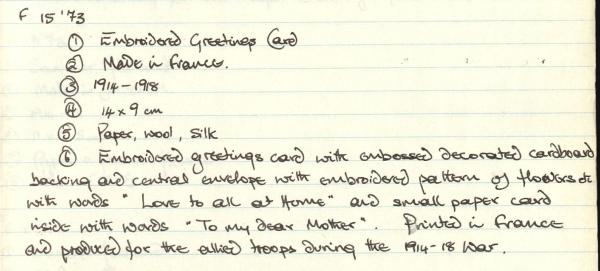 F 15'73
① Embroidered Greetings Card
② Made in France.
③ 1914-1918
④ 14 x 9 cm
⑤ Paper, wool, silk
⑥ Embroidered greetings card with embossed decorated cardboard
backing and central envelope with embroidered pattern of flowers etc
with words "Love to all at Home" and small paper card
inside with words "To my dear Mother". Printed in France
and produced for the allied troops during the 1914-18 War.